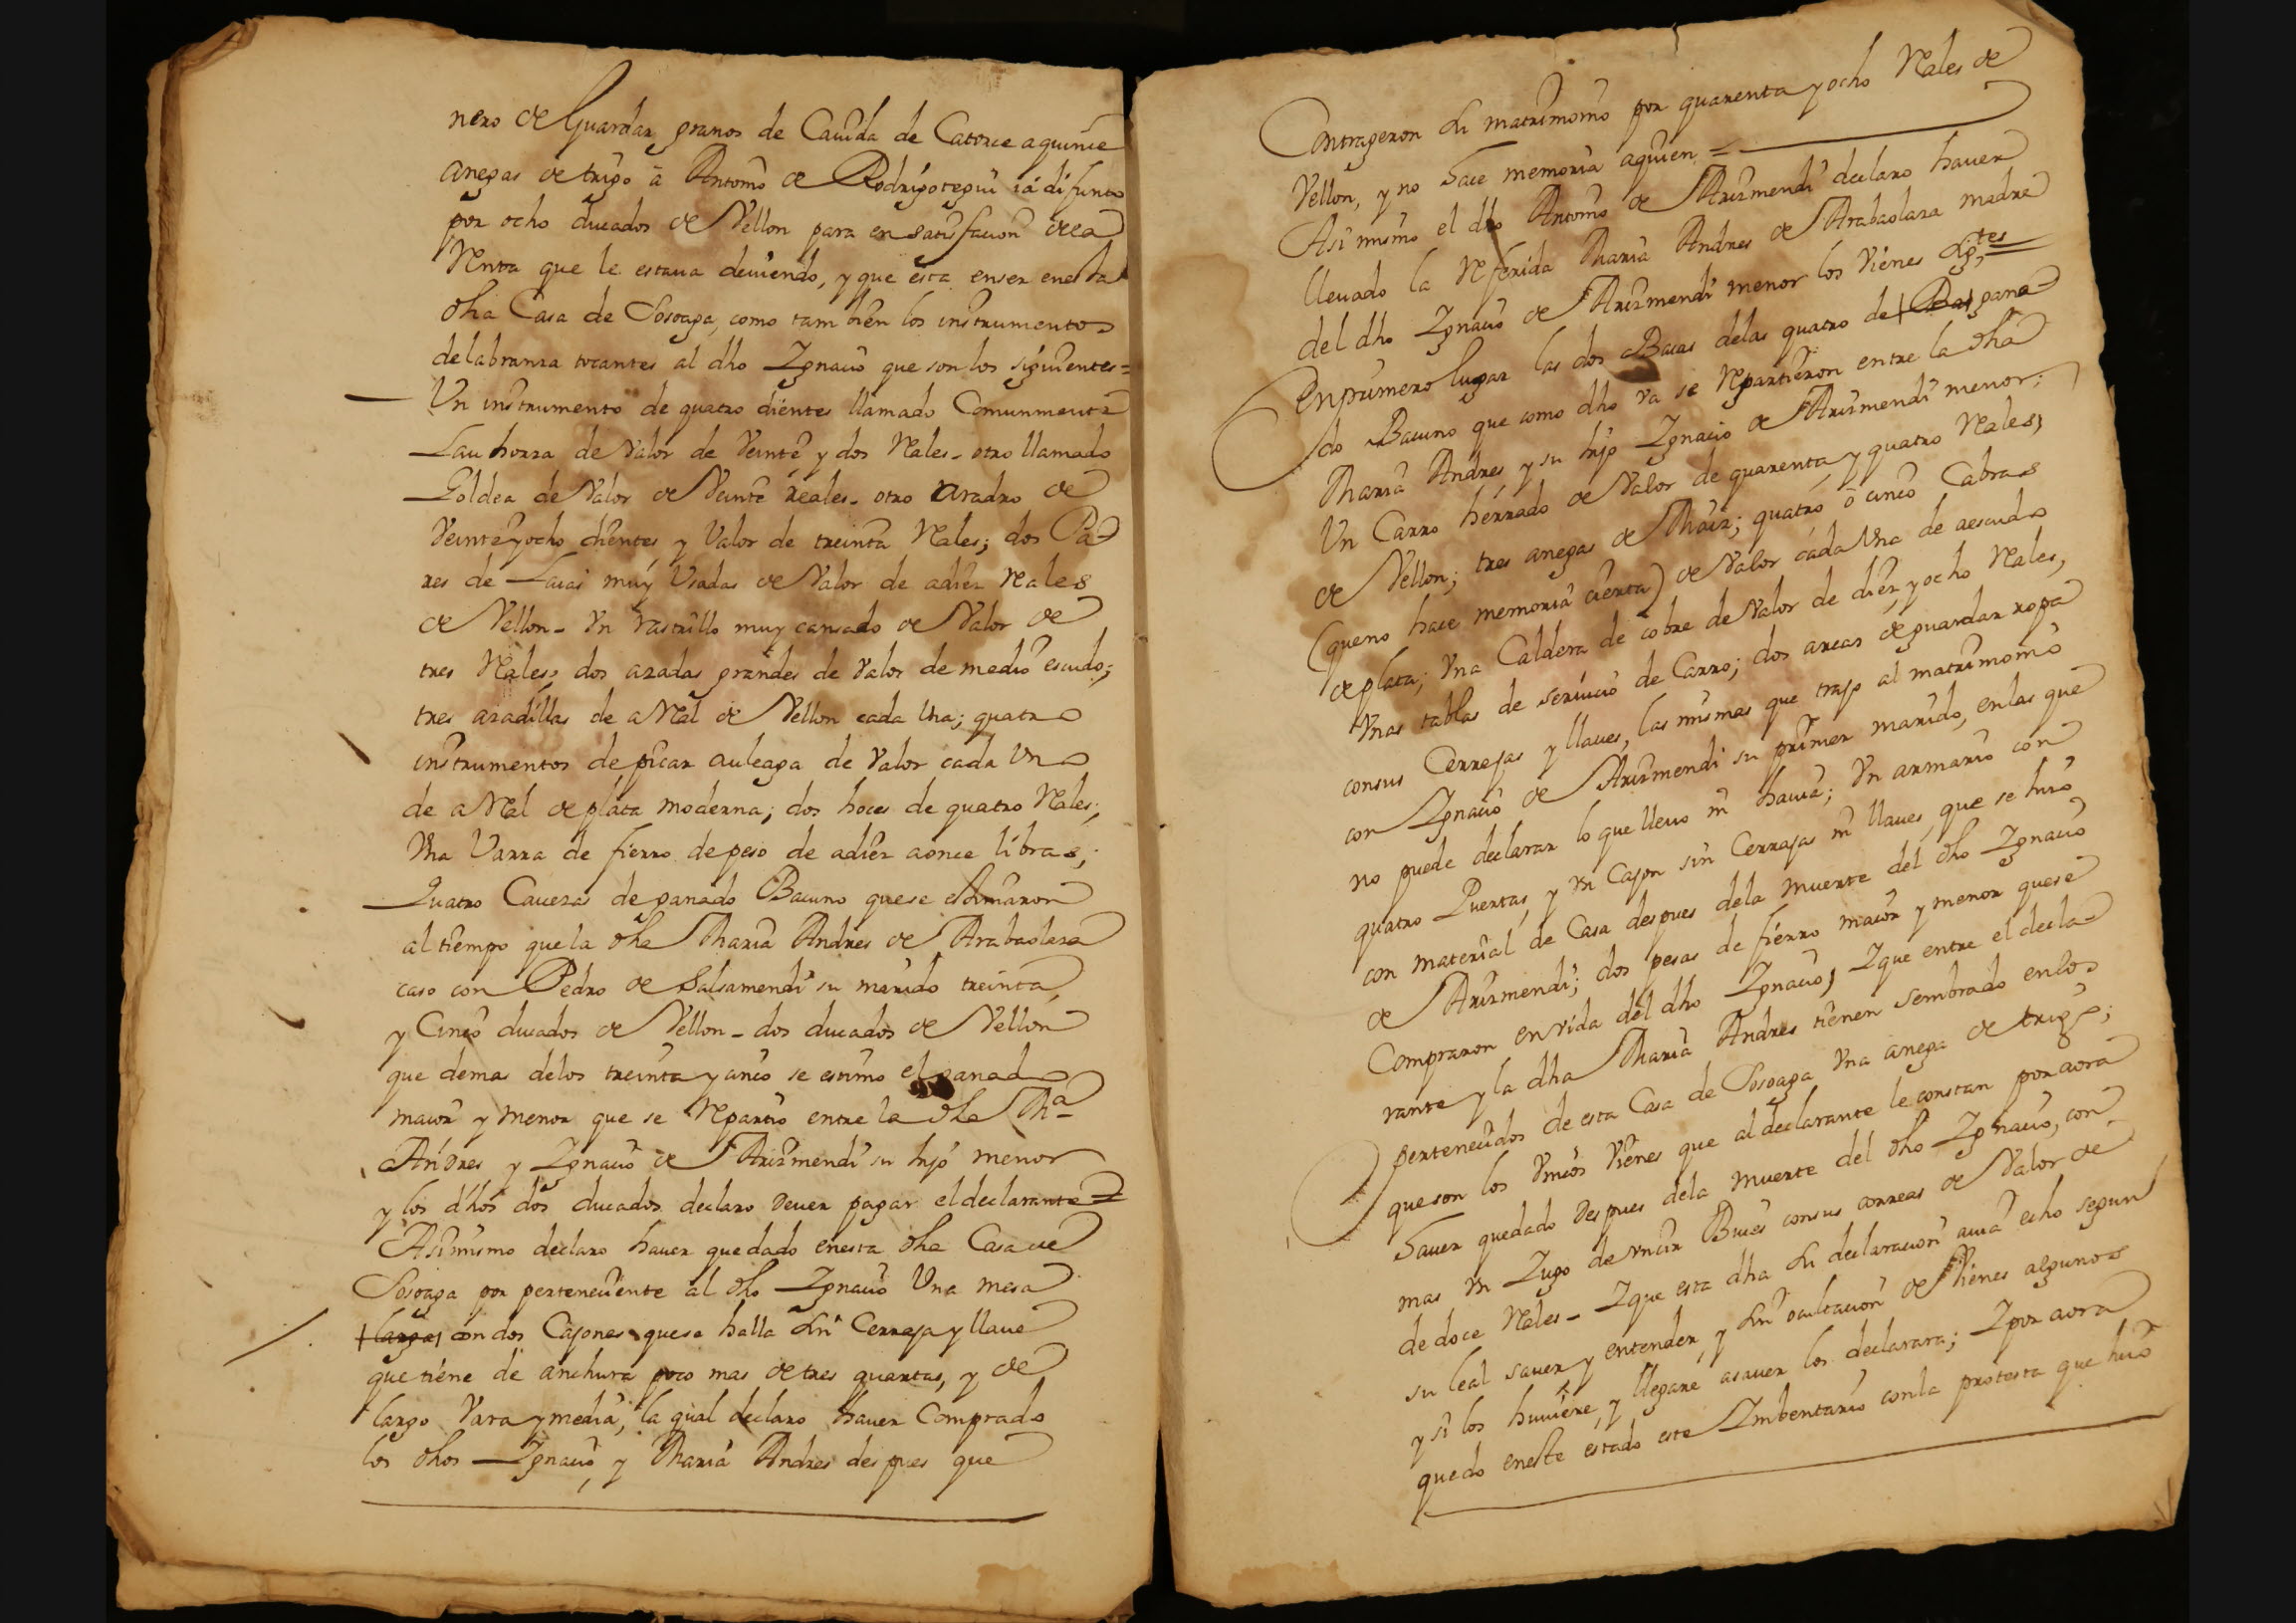 nero de Guardar granos de Cauida de Catorce aquince
anegas de trigo â Antonio de Rodrigotegui iá difunto
por ocho ducados de Vellon para en satisfacion dela
Renta que le estaua deuiendo, y que esta enser enesta
dha Casa de Sosoaga, como tambien los instrumentos
delabranza tocantes al dho Ygnacio que son los siguientes=
Un instrumento de quatro dientes llamado Comunmente
Lauhorza de Valor de Veinte y dos Reales- otro llamado
Goldea de Valor de Veinte reales- otro aradro de
Veinteyocho dientes y Valor de treinta Reales; dos Pa-
res de Laias muy Usadas de Valor de adiez Reales
de Vellon- Un rastrillo muy cansado de Valor de
tres Reales; dos azadas grandes de Valor de medio escudo;
tres azadillas de a Real de Vellon cada Una; quatro
instrumentos de picar auleaga de Valor cada Uno
de a Real de plata moderna; dos hoces de quatro Reales;
Una Varra de fierro de peso de adiez aonce libras;
Quatro Cauezas de ganado Bacuno quese estimaron
al tiempo que la dha Maria Andres de Arabaolaza
caso con Pedro de Salsamendi su marido treinta
y Cinco ducados de Vellon- dos ducados de Vellon
que demas delos treinta y cinco se estimo el ganado
maior y menor que se Repartio entre la dha Ma
Andres y Ygnacio de Arizmendi su hijo menor
y los dhos dos ducados declaro deuer pagar el declarante=
Asimismo declaro hauer quedado enesta dha Casa de
Sosoaga por perteneciente al dho Ygnacio Una mesa
larga con dos Cajones quese halla sin Cerraja y llaue
que tiene de anchura poco mas de tres quartas, y de
largo Vara y media, la qual declaro hauer Comprado
los dhos Ygnacio, y Maria Andres despues que
Contrageron su matrimonio por quarenta y ocho Reales de
Vellon, y no hace memoria aquien =
Asi mismo el dho Antonio de Arizmendi declaro hauer
lleuado la Referida Maria Andres de Arabaolaza madre
del dho Ygnacio de Arizmendi menor los Vienes sigtes
En primero lugar las dos Bacas delas quatro de Ba gana-
do Bacuno que como dho va se Repartieron entre la dha
Maria Andres, y su hijo Ygnacio de Arizmendi menor;
Un Carro herrado de Valor de quarenta y quatro Reales
de Vellon; tres anegas de Maiz; quatro ô cinco Cabras
(queno hace memoria cierta) de Valor cada Una de aescudo
de plata; Una Caldera de cobre de Valor de diez y ocho Reales,
Unas tablas de seruicio de Carro; dos arcas de guardar ropa
consus Cerrajas y llaues, las mismas que trajo al matrimonio
con Ygnacio de Arizmendi su primer marido, enlas que
no puede declarar lo que lleuo ni hauia; Un armario con
quatro Puertas, y un Cajon sin Cerrajas ni llaues, que se hizo
con material de Casa despues dela muerte del dho Ygnacio
de Arizmendi; dos pesas de fierro maior y menor quese
Compraron en vida del dho Ygnacio, Y que entre el decla-
rante y la dha Maria Andres tienen sembrado enlos
pertenecidos de esta Casa de Sosoaga Una anega de trigo;
que son los Unicos Vienes que al declarante le constan por aora
hauer quedado despues dela muerte del dho Ygnacio, con
mas Un Yugo de uncir Bues consus correas de Valor de
de doce Reales- Y que esta dha su declaracion auia echo segun
su leal sauer y entender, y sin ocultacion de Vienes algunos
y si los huuiere, y llegare asauer los declarara; Y por aora
quedo eneste estado este Ymbentario conla protesta que hizo